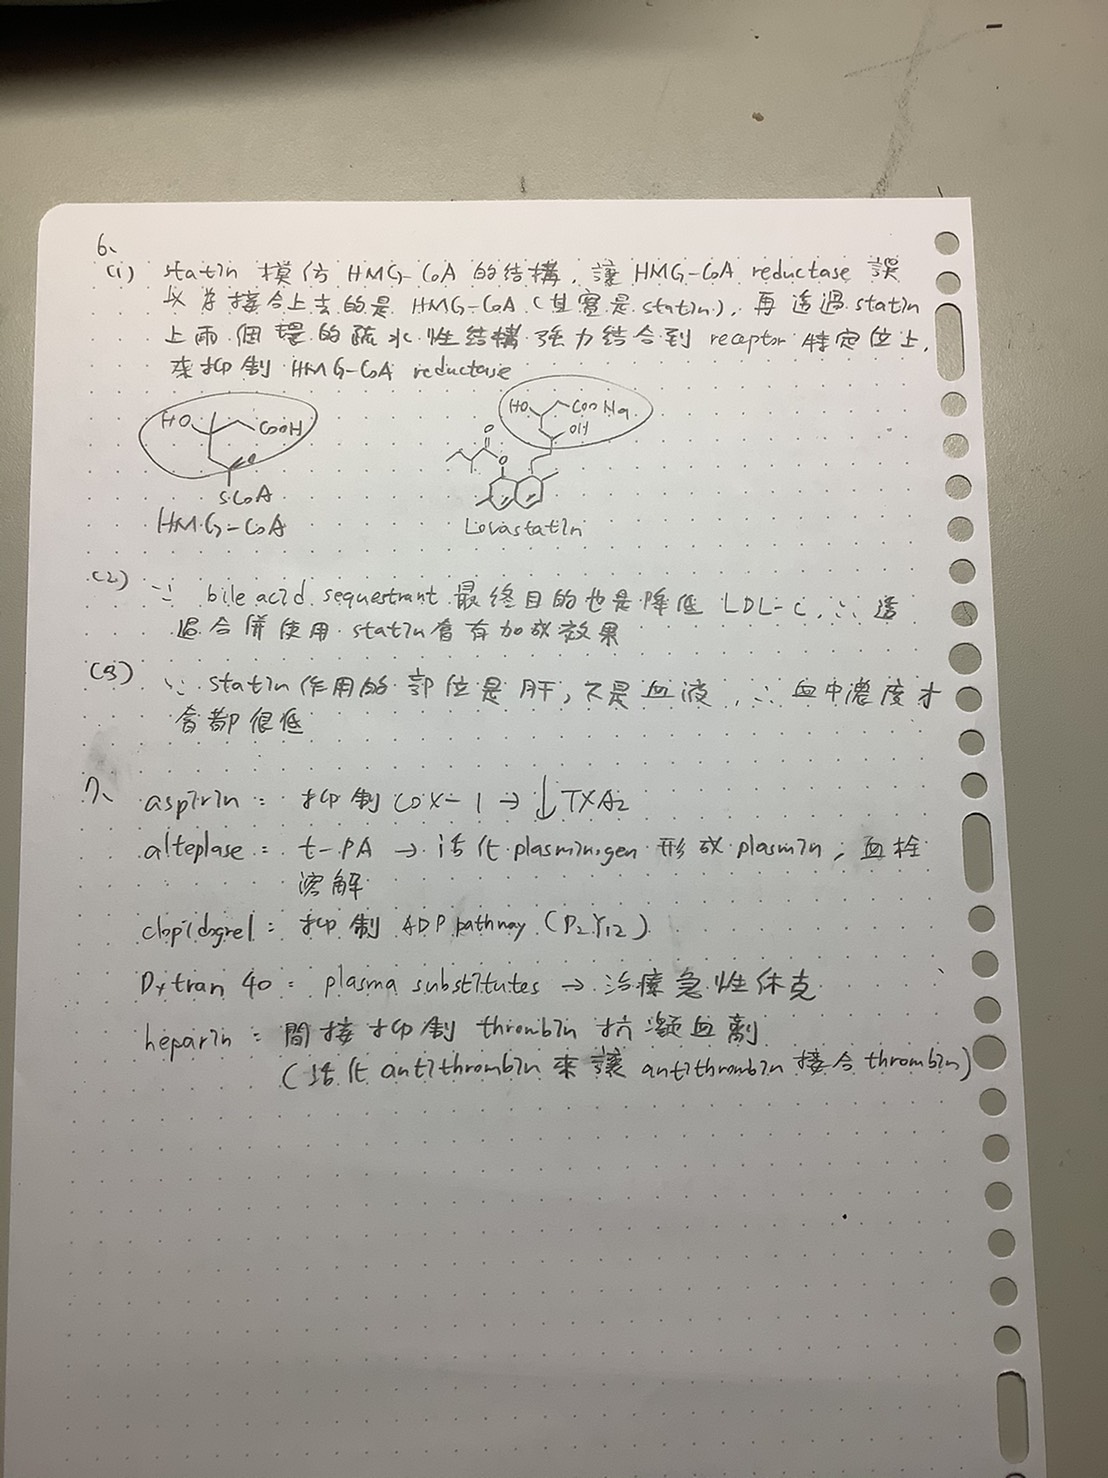 6、
(1) statin 模仿 HMG-CoA 的結構，讓 HMG-CoA reductase 誤
以為接合上去的是 HMG-CoA (其實是 statin)，再透過 statin
上兩個環的疏水性結構強力結合到 receptor 特定位上，
來抑制 HMG-CoA reductase
HO COOH
O
S-CoA
HMG-CoA
HO COONa
OH
O
O
Lovastatin
(2) ∵ bile acid sequestrant 最終目的也是降低 LDL-C，∴ 透
過合併使用 statin 會有加成效果
(3) ∵ statin 作用的部位是肝，不是血液，∴ 血中濃度才
會都很低
7、 aspirin： 抑制 COX-1 → ↓TXA2
alteplase： t-PA → 活化 plasminogen 形成 plasmin，血栓
溶解
clopidogrel： 抑制 ADP pathway (P2Y12)
Dxtran 40： plasma substitutes → 治療急性休克
heparin： 間接抑制 thrombin 抗凝血劑
(活化 antithrombin 來讓 antithrombin 接合 thrombin)